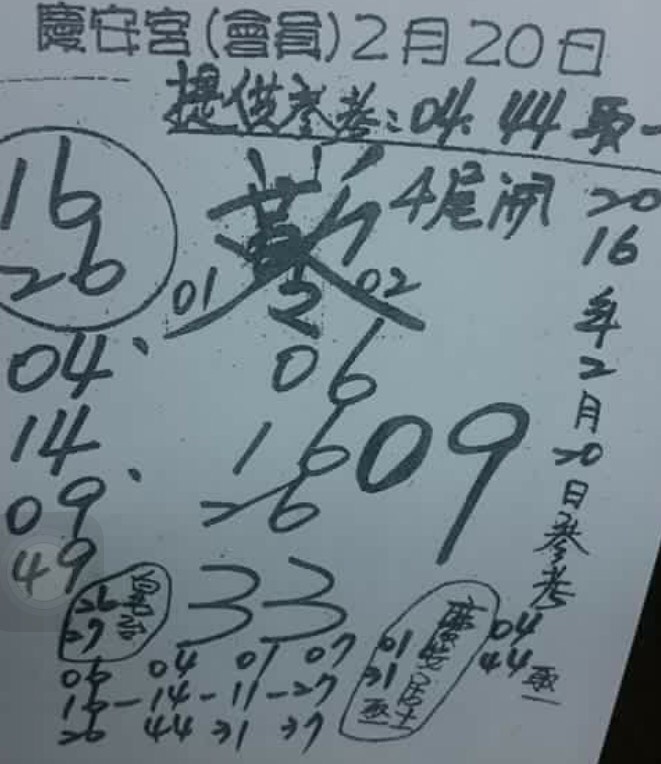 慶安宮(會員)2月20日
提供參考:04.44取一
4尾開
16
26
01 02
04
14
09
49
06
16
26
09
33
2016年2月20日參考
04
44取一
26
27
01
31
取一
06 04 01 07
16-14-11-27
26 44 31 37